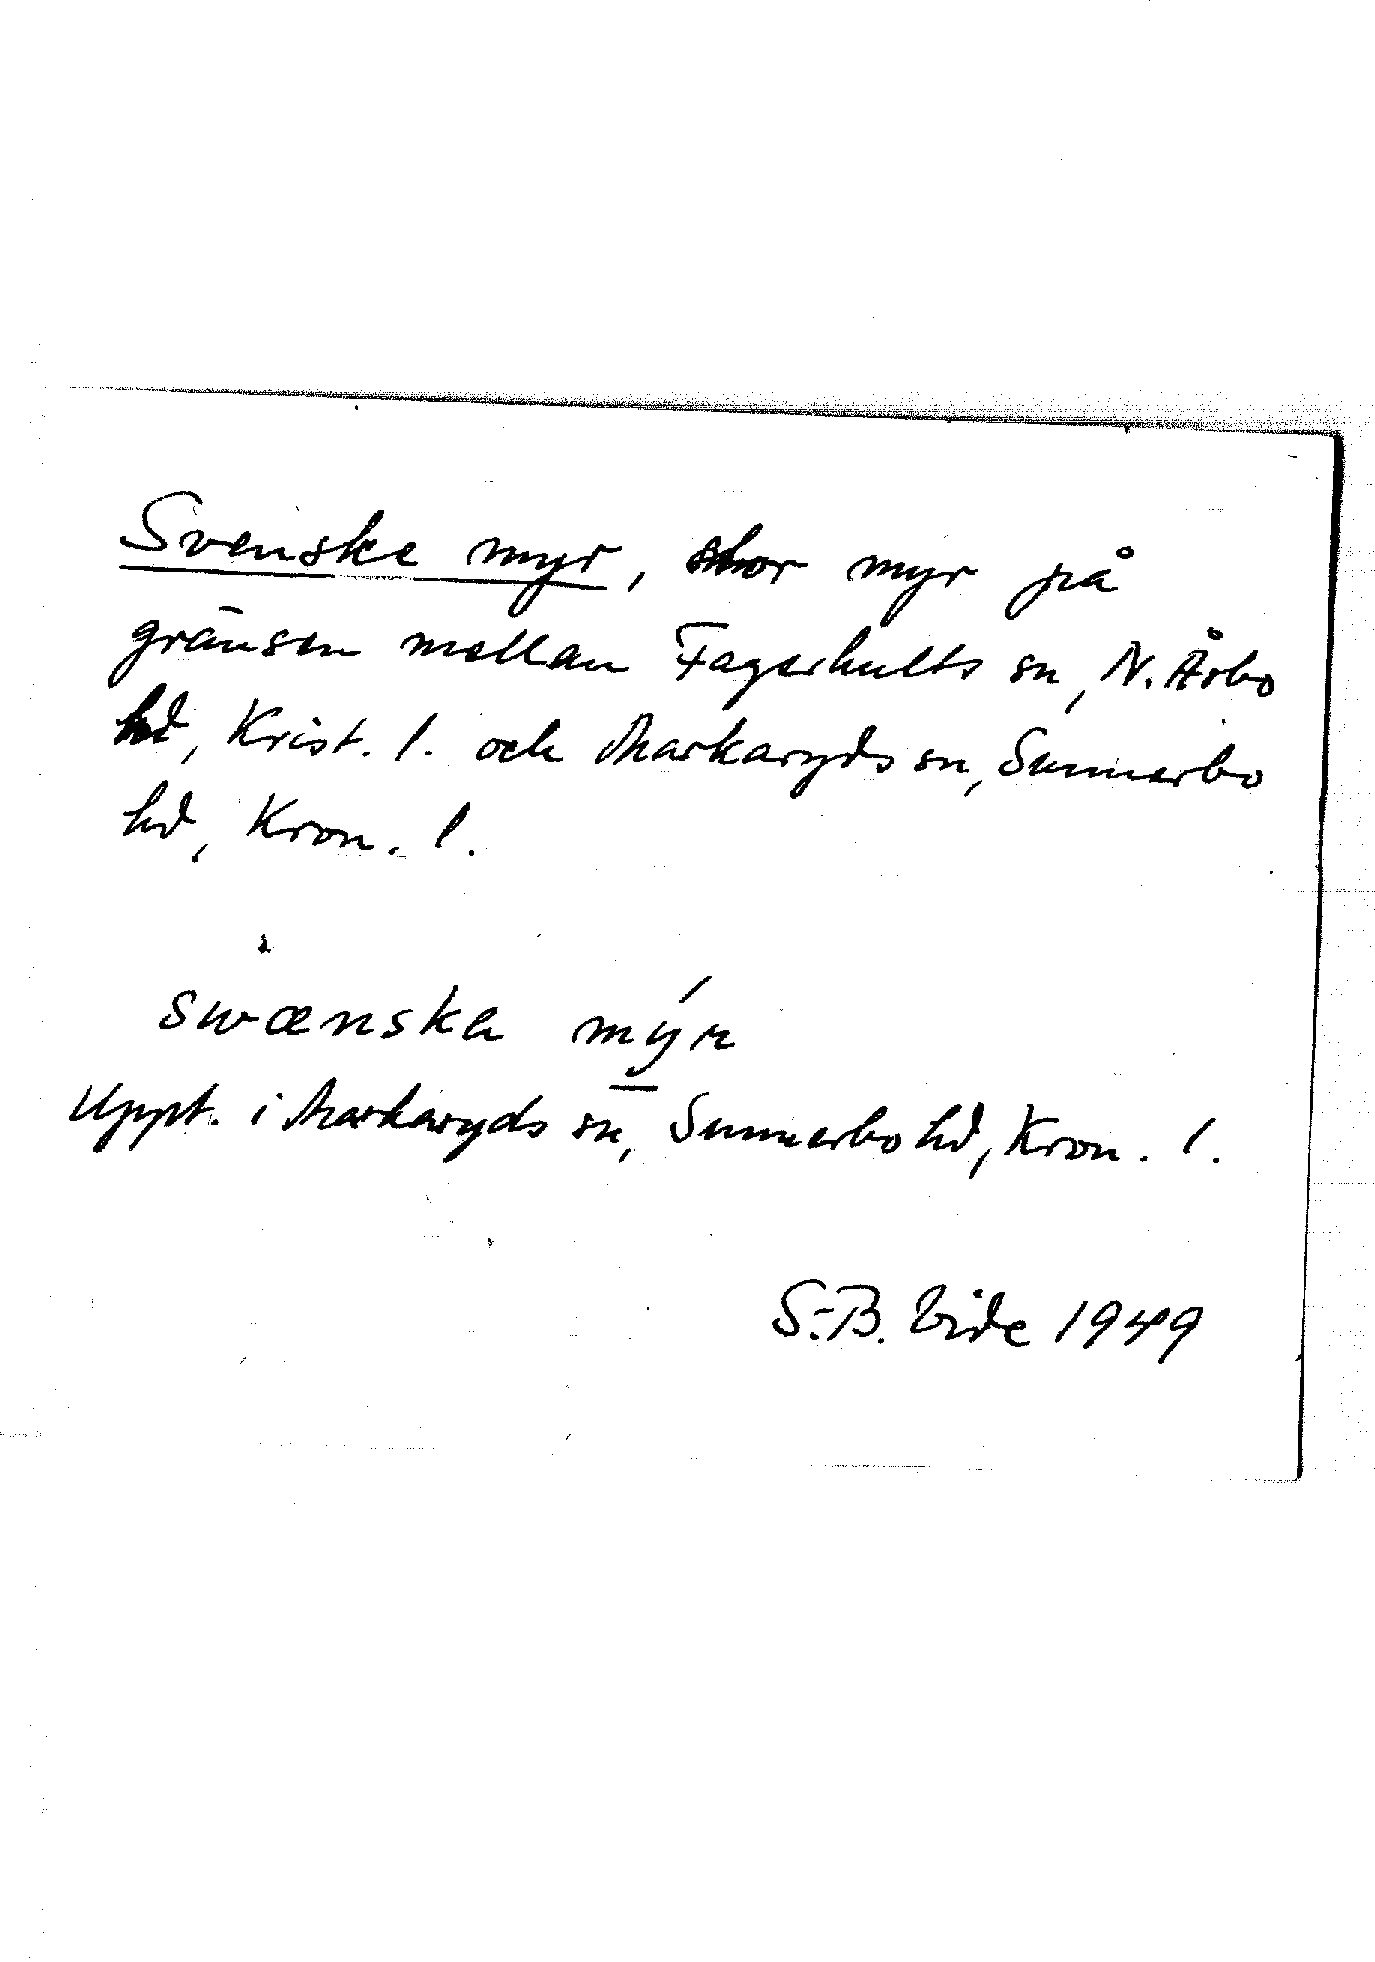 Svenske myr, stor myr på
gränsen mellan Fagerhults sn, N. Åsbo
hd, Krist. l. och Markaryds sn, Sunnerbo
hd, Kron. l.
swænska mýr
Uppt. i Markaryds sn, Sunnerbo hd, Kron. l.
S.-B. Vide 1949